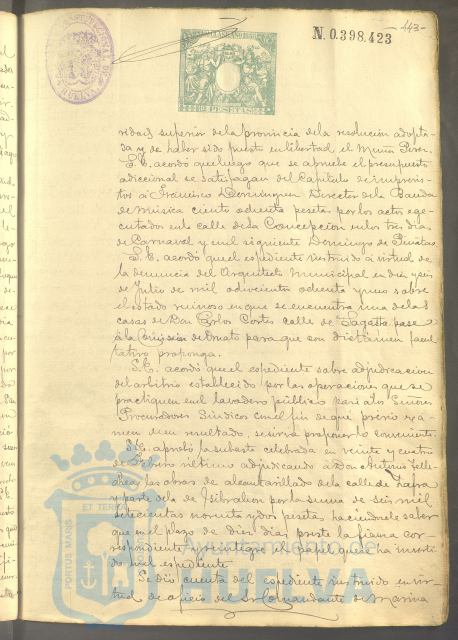 -143-
N.0.398.423
PESETAS
redado superior de la provincia de la resolucion adopta-
da y de haber sido puesto en libertad el Muñiz Perez.
S.E. acordó que luego que se apruebe el presupuesto
adiccional se satisfagan del Capitulo de imprevis-
tos á Francisco Dominguez Director de la Banda
de Musica ciento ochenta pesetas por los actos ege-
cutados en la calle de la Concepcion en los tres dias
de Carnaval y en el siguiente Domingo de Piñatas.
S.E. acordó que el espediente instruido á virtud de
la denuncia del Arquitecto Municipal en diez y seis
de Julio de mil ochocientos ochenta y uno sobre
el estado ruinoso en que se encuentra una de las
casas de Don Carlos Cortés calle de Sagasta pase
á la Comision de Ornato para que con dictámen facul-
tativo proponga.
S.E. acordó que el espediente sobre adjudicacion
del arbitrio establecido por las operaciones que se
practiquen en el lavadero público pase á los Señores
Procuradores Sindicos con el fin de que previo exá-
men de su resultado, se sirva proponer lo conveniente.
S.E. aprobó la subasta celebrada en veinte y cuatro
de Febrero último adjudicando á Don Antonio
las obras de alcantarillado de la calle de Zafra
y parte de la de Gibraleon por la suma de seis mil
setecientas noventa y dos pesetas, haciendosele saber
que en el plazo de diez dias preste la fianza cor-
respondiente y reintegre el papel que se ha inverti-
do en el espediente.
Se dió cuenta del espediente instruido en vir-
tud de oficio del Sr. Comandante de Marina
ET TERRAE
PORTUS MARIS
Ayuntamiento de
HUELVA